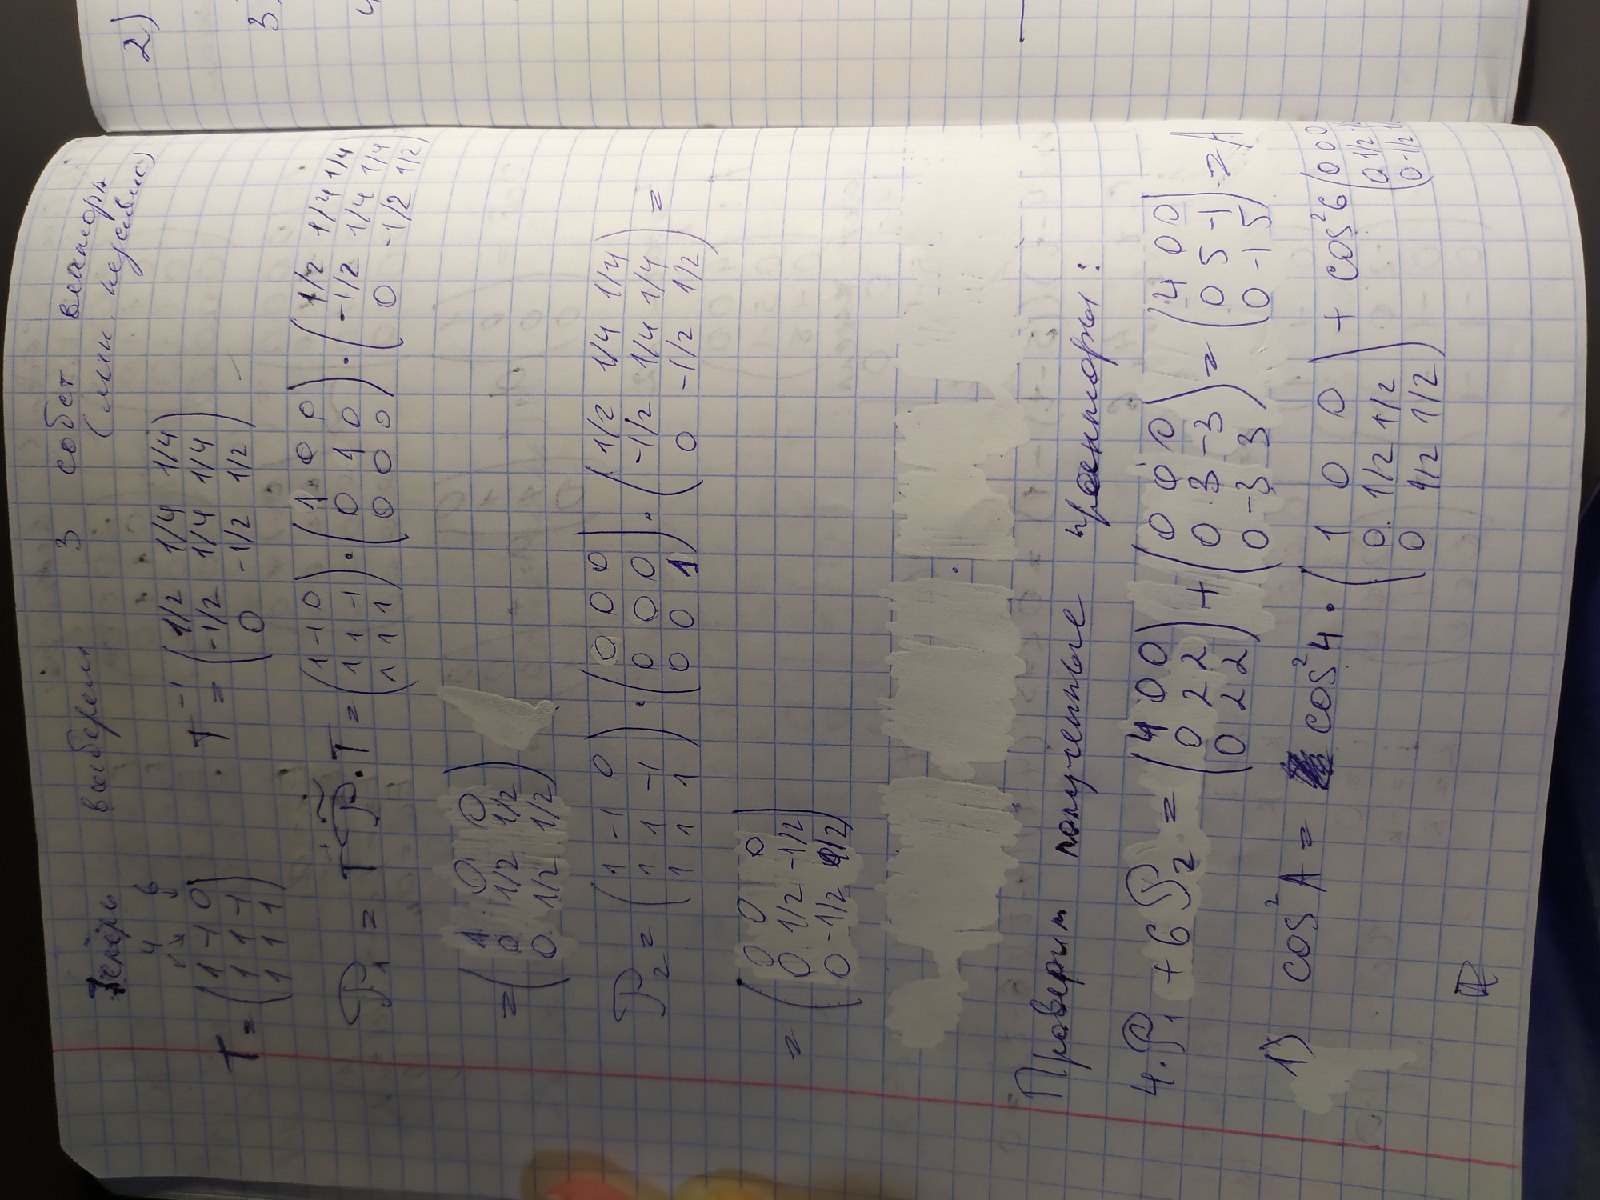 Теперь выберем 3 собст. вектора
(лин. независ)
4 6
T = (1 -1 0; 1 1 -1; 1 1 1) T⁻¹ = (1/2 1/4 1/4; -1/2 1/4 1/4; 0 -1/2 1/2)
P₁ = T P̃·T = (1 -1 0; 1 1 -1; 1 1 1) · (1 0 0; 0 1 0; 0 0 0) · (1/2 1/4 1/4; -1/2 1/4 1/4; 0 -1/2 1/2)
= (1 0 0; 0 1/2 1/2; 0 1/2 1/2)
P₂ = (1 -1 0; 1 1 -1; 1 1 1) · (0 0 0; 0 0 0; 0 0 1) · (1/2 1/4 1/4; -1/2 1/4 1/4; 0 -1/2 1/2) =
= (0 0 0; 0 1/2 -1/2; 0 -1/2 1/2)
Проверим полученные проекторы:
4·P₁ + 6P₂ = (4 0 0; 0 2 2; 0 2 2) + (0 0 0; 0 3 -3; 0 -3 3) = (4 0 0; 0 5 -1; 0 -1 5) = A
1) cos²A = cos²4 · (1 0 0; 0 1/2 1/2; 0 1/2 1/2) + cos²6 (0 0 0; 0 1/2; 0 -1/2
2)
3